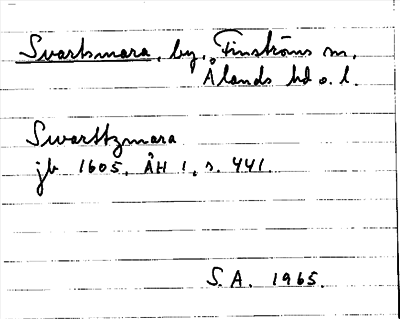 Svartsmara, by, Finströms sn,
Ålands hd o. l.
Swarttzmara
jb 1605. ÅH 1, s. 441.
S.A. 1965.